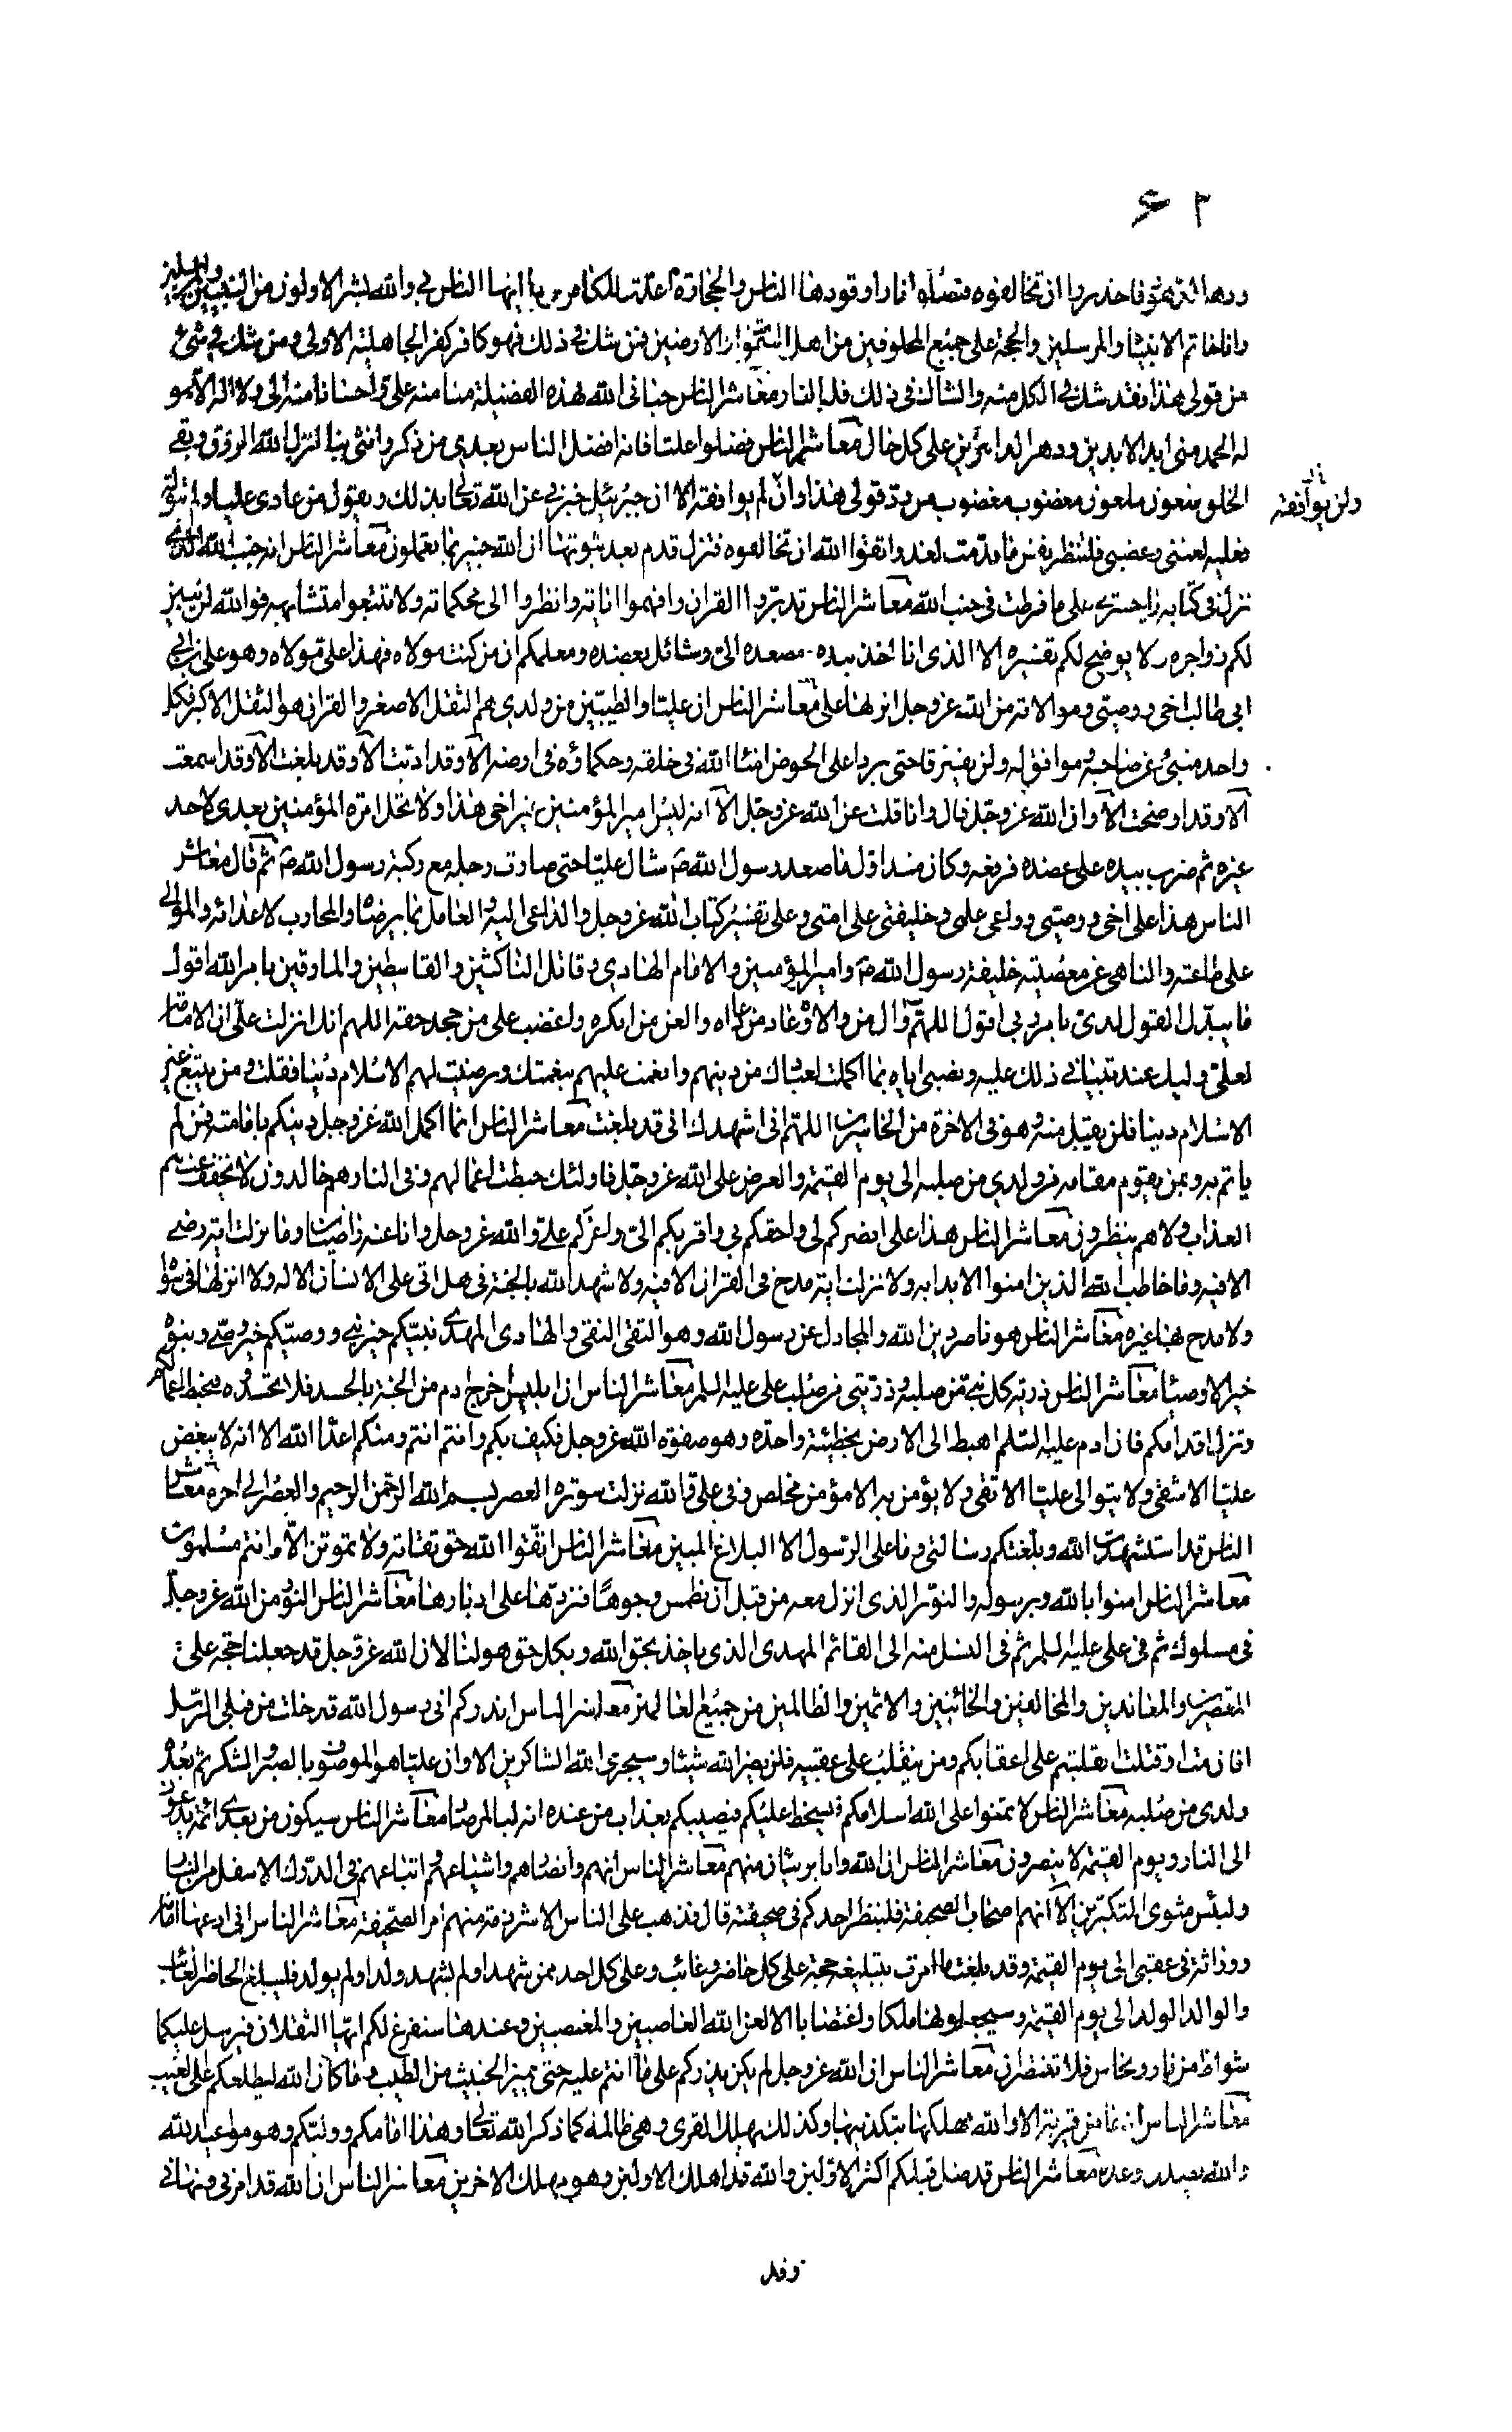 ۶۲
ودهر الدهور فاحذروا ان تخالفوه فتصلوا نارا وقودها الناس والحجارة اعدت للكافرين يا ايها الناس بي والله بشر الاولون من النبيين والمرسلين
وانا خاتم الانبيآء والمرسلين والحجة على جميع المخلوقين من اهل السموات والارضين فمن شك في ذلك فهو كافر كفر الجاهلية الاولى ومن شك في شئ
من قولي هذا فقد شك في الكل منه والشاك في ذلك فله النار معاشر الناس حباني الله بهذه الفضيلة منا منه علي واحسانا منه الي ولا اله الا هو
له الحمد مني ابد الابدين ودهر الداهرين على كل حال معاشر الناس فضلوا عليا فانه افضل الناس بعدي من ذكر وانثى بنا انزل الله الرزق وبقي
الخلق ملعون ملعون مغضوب مغضوب من رد قولي هذا وان لم يوافقه الا ان جبرئيل خبرني عن الله تعالى بذلك ويقول من عادى عليا ولم يتوله
ولن يوافقه
فعليه لعنتي وغضبي فلتنظر نفس ما قدمت لغد واتقوا الله ان تخالفوه فتزل قدم بعد ثبوتها ان الله خبير بما تعملون معاشر الناس انه جنب الله الذي
نزل في كتابه يا حسرتى على ما فرطت في جنب الله معاشر الناس تدبروا القران وافهموا اياته وانظروا الى محكماته ولا تتبعوا متشابهه فوالله لن يبين
لكم زواجره ولا يوضح لكم تفسيره الا الذي انا اخذ بيده ومصعده الي وشائل بعضده ومعلمكم ان من كنت مولاه فهذا علي مولاه وهو علي بن
ابي طالب اخي ووصيي وموالاته من الله عز وجل انزلها علي معاشر الناس ان عليا والطيبين من ولدي هم الثقل الاصغر والقران هو الثقل الاكبر فكل
واحد منبئ عن صاحبه وموافق له ولن يفترقا حتى يردا على الحوض امناء الله في خلقه وحكماؤه في ارضه الا وقد اديت الا وقد بلغت الا وقد اسمعت
الا وقد اوضحت الا وان الله عز وجل قال وانا قلت عن الله عز وجل الا انه ليس امير المؤمنين غير اخي هذا ولا تحل امرة المؤمنين بعدي لاحد
غيره ثم ضرب بيده على عضده فرفعه وكان منذ اول ما صعد رسول الله ص شال عليا حتى صارت رجله مع ركبة رسول الله ص ثم قال معاشر
الناس هذا علي اخي ووصيي وواعي علمي وخليفتي على امتي وعلى تفسير كتاب الله عز وجل والداعي اليه والعامل بما يرضاه والمحارب لاعدائه والموالي
على طاعته والناهي عن معصيته خليفة رسول الله ص وامير المؤمنين والامام الهادي وقاتل الناكثين والقاسطين والمارقين بامر الله اقول
ما يبدل القول لدي بامر ربي اقول اللهم وال من والاه وعاد من عاداه والعن من انكره واغضب على من جحد حقه اللهم انك انزلت علي ان الامامة
لعلي وليك عند تبياني ذلك عليه ونصبي اياه بما اكملت لعبادك من دينهم واتممت عليهم بنعمتك ورضيت لهم الاسلام دينا فقلت ومن يبتغ غير
الاسلام دينا فلن يقبل منه وهو في الاخرة من الخاسرين اللهم اني اشهدك اني قد بلغت معاشر الناس انما اكمل الله عز وجل دينكم بامامته فمن لم
ياتم به وبمن يقوم مقامه من ولدي من صلبه الى يوم القيمة والعرض على الله عز وجل فاولئك حبطت اعمالهم وفي النار هم خالدون لا يخفف عنهم
العذاب ولا هم ينظرون معاشر الناس هذا علي انصركم لي واحقكم بي واقربكم الي واعزكم علي والله عز وجل وانا عنه راضيان وما نزلت اية رضى
الا فيه وما خاطب الله الذين امنوا الا بدا به ولا نزلت اية مدح في القران الا فيه ولا شهد الله بالجنة في هل اتى على الانسان الا له ولا انزلها في سواه
ولا مدح بها غيره معاشر الناس هو ناصر دين الله والمجادل عن رسول الله وهو التقي النقي والهادي المهدي نبيكم خير نبي ووصيكم خير وصي وبنوه
خير الاوصياء معاشر الناس ذرية كل نبي من صلبه وذريتي من صلب علي عليه السلم معاشر الناس ان ابليس اخرج ادم من الجنة بالحسد فلا تحسدوه فتحبط اعمالكم
وتزل اقدامكم فان ادم عليه السلم اهبط الى الارض بخطيئة واحدة وهو صفوة الله عز وجل فكيف بكم وانتم انتم ومنكم اعداء الله الا انه لا يبغض
عليا الا شقي ولا يتوالى عليا الا تقي ولا يؤمن به الا مؤمن مخلص وفي علي والله نزلت سورة العصر بسم الله الرحمن الرحيم والعصر الى اخره معاشر
الناس قد استشهدت الله وبلغتكم رسالتي وما على الرسول الا البلاغ المبين معاشر الناس اتقوا الله حق تقاته ولا تموتن الا وانتم مسلمون
معاشر الناس امنوا بالله وبرسوله والنور الذي انزل معه من قبل ان نطمس وجوها فنردها على ادبارها معاشر الناس النور من الله عز وجل
في مسلوك ثم في علي عليه السلم ثم في النسل منه الى القائم المهدي الذي ياخذ بحق الله وبكل حق هو لنا لان الله عز وجل قد جعلنا حجة على
المقصرين والمعاندين والمخالفين والخائنين والاثمين والظالمين من جميع العالمين معاشر الناس انذركم اني رسول الله قد خلت من قبلي الرسل
افان مت او قتلت انقلبتم على اعقابكم ومن ينقلب على عقبيه فلن يضر الله شيئا وسيجزي الله الشاكرين الا وان عليا هو الموصوف بالصبر والشكر ثم بعده
ولدي من صلبه معاشر الناس لا تمنوا على الله اسلامكم فيسخط عليكم فيصيبكم بعذاب من عنده انه لبالمرصاد معاشر الناس سيكون من بعدي ائمة يدعون
الى النار ويوم القيمة لا ينصرون معاشر الناس ان الله وانا بريئان منهم معاشر الناس انهم وانصارهم واشياعهم واتباعهم في الدرك الاسفل من النار
ولبئس مثوى المتكبرين الا انهم اصحاب الصحيفة فلينظر احدكم في صحيفته قال فذهب على الناس الا شرذمة منهم امر الصحيفة معاشر الناس اني ادعها امامة
ووراثة في عقبي الى يوم القيمة وقد بلغت ما امرت بتبليغه حجة على كل حاضر وغائب وعلى كل احد ممن شهد او لم يشهد ولد او لم يولد فليبلغ الحاضر الغائب
والوالد الولد الى يوم القيمة وسيجعلونها ملكا واغتصابا الا لعن الله الغاصبين والمغتصبين وعندها سنفرغ لكم ايها الثقلان فيرسل عليكما
شواظ من نار ونحاس فلا تنتصران معاشر الناس ان الله عز وجل لم يكن يذركم على ما انتم عليه حتى يميز الخبيث من الطيب وما كان الله ليطلعكم على الغيب
معاشر الناس انه ما من قرية الا والله مهلكها بتكذيبها وكذلك يهلك القرى وهي ظالمة كما ذكر الله تعالى وهذا امامكم ووليكم وهو مواعيد الله
والله يصدق وعده معاشر الناس قد ضل قبلكم اكثر الاولين والله قد اهلك الاولين وهو مهلك الاخرين معاشر الناس ان الله قد امرني ونهاني
وقد